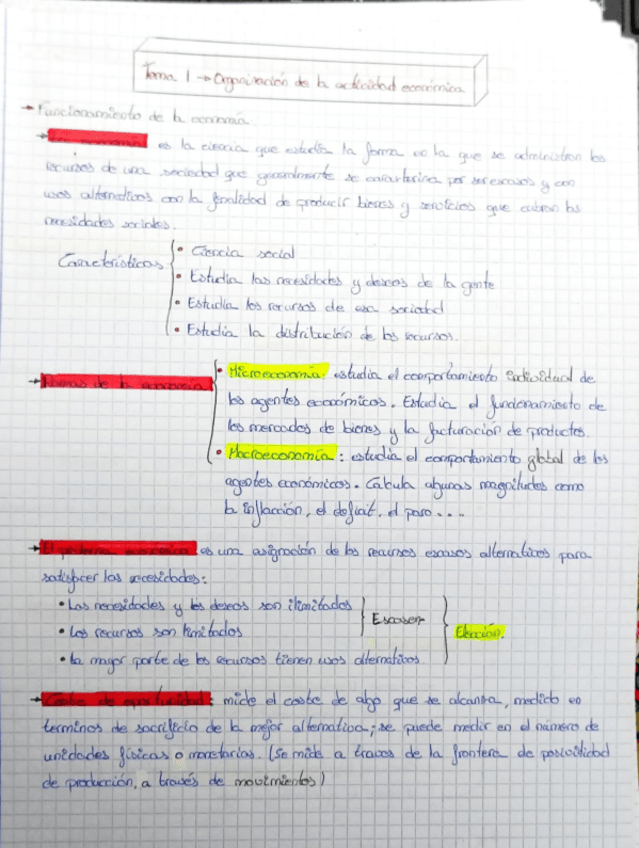 Tema 1 → Organización de la actividad económica
→ Funcionamiento de la economía.
→ La economía es la ciencia que estudia la forma en la que se administran los
recursos de una sociedad que generalmente se caracteriza por ser escasos y con
usos alternativos con la finalidad de producir bienes y servicios que cubren las
necesidades sociales.
Características
• Ciencia social
• Estudia las necesidades y deseos de la gente
• Estudia los recursos de esa sociedad
• Estudia la distribución de los recursos.
→ Ramas de la economía
• Microeconomía: estudia el comportamiento individual de
los agentes económicos. Estudia el funcionamiento de
los mercados de bienes y la facturación de productos.
• Macroeconomía: estudia el comportamiento global de los
agentes económicos. Calcula algunas magnitudes como
la inflacción, el deficit, el paro...
→ El problema económico es una asignación de los recursos escasos alternativos para
satisfacer las necesidades:
• Las necesidades y los deseos son ilimitados
• Los recursos son limitados
Escasez
Elección.
• La mayor parte de los recursos tienen usos alternativos
→ Coste de oportunidad: mide el coste de algo que se alcanza, medido en
terminos de sacrificio de la mejor alternativa; se puede medir en el número de
unidades físicas o monetarias. (Se mide a traves de la frontera de posibilidad
de producción, a través de movimientos)